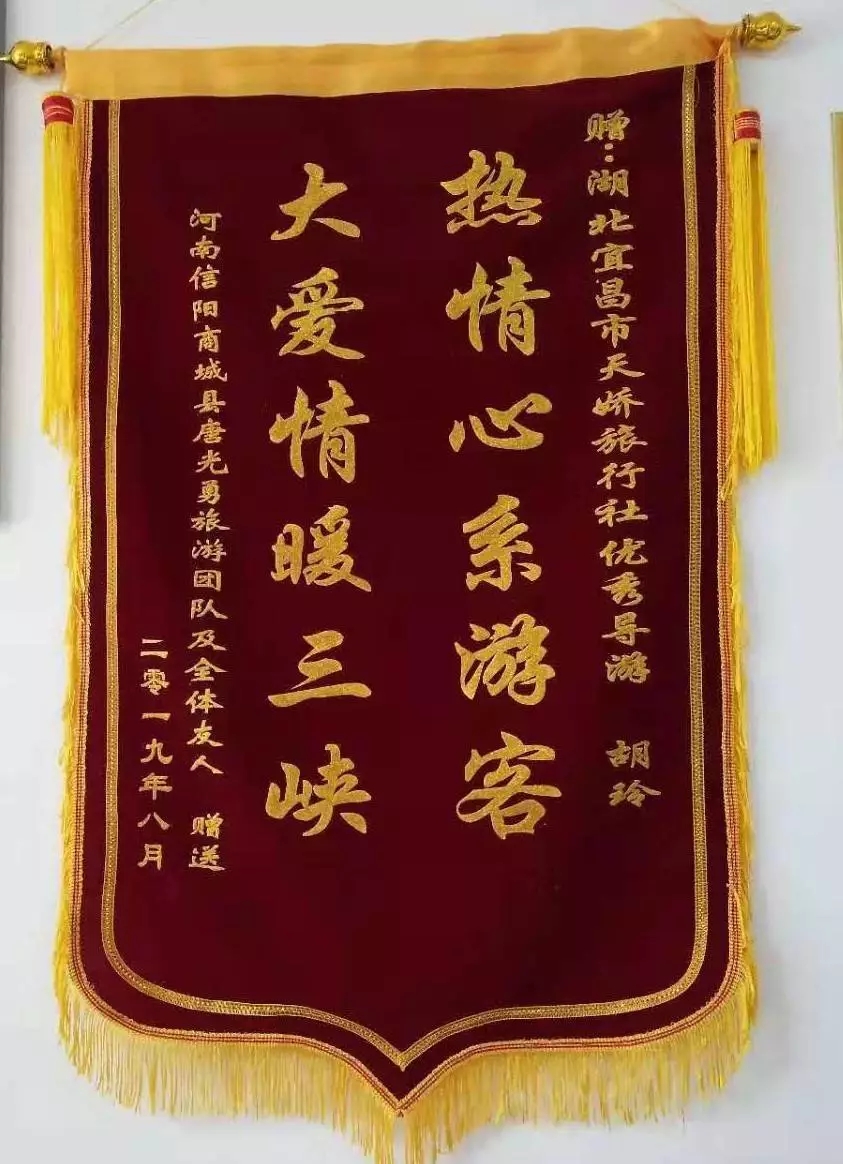 赠:湖北宜昌市天娇旅行社优秀导游 胡玲
热情心系游客
大爱情暖三峡
河南信阳商城县唐光勇旅游团队及全体友人 赠送
二零一九年八月